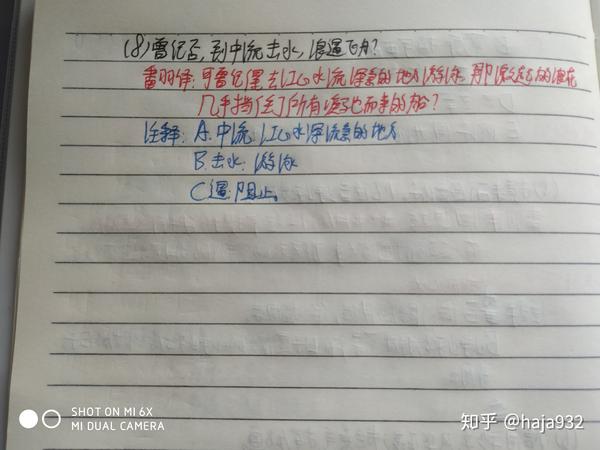 (8)曾记否,到中流击水,浪遏飞舟?
翻译:可曾记得,去江心水流深急的地方游泳,那激起的浪花
几乎挡住了所有疾驰而来的船?
注释: A.中流:江心水深流急的地方
B.击水:游泳
C遏:阻止。
SHOT ON MI 6X
MI DUAL CAMERA
知乎 @haja932